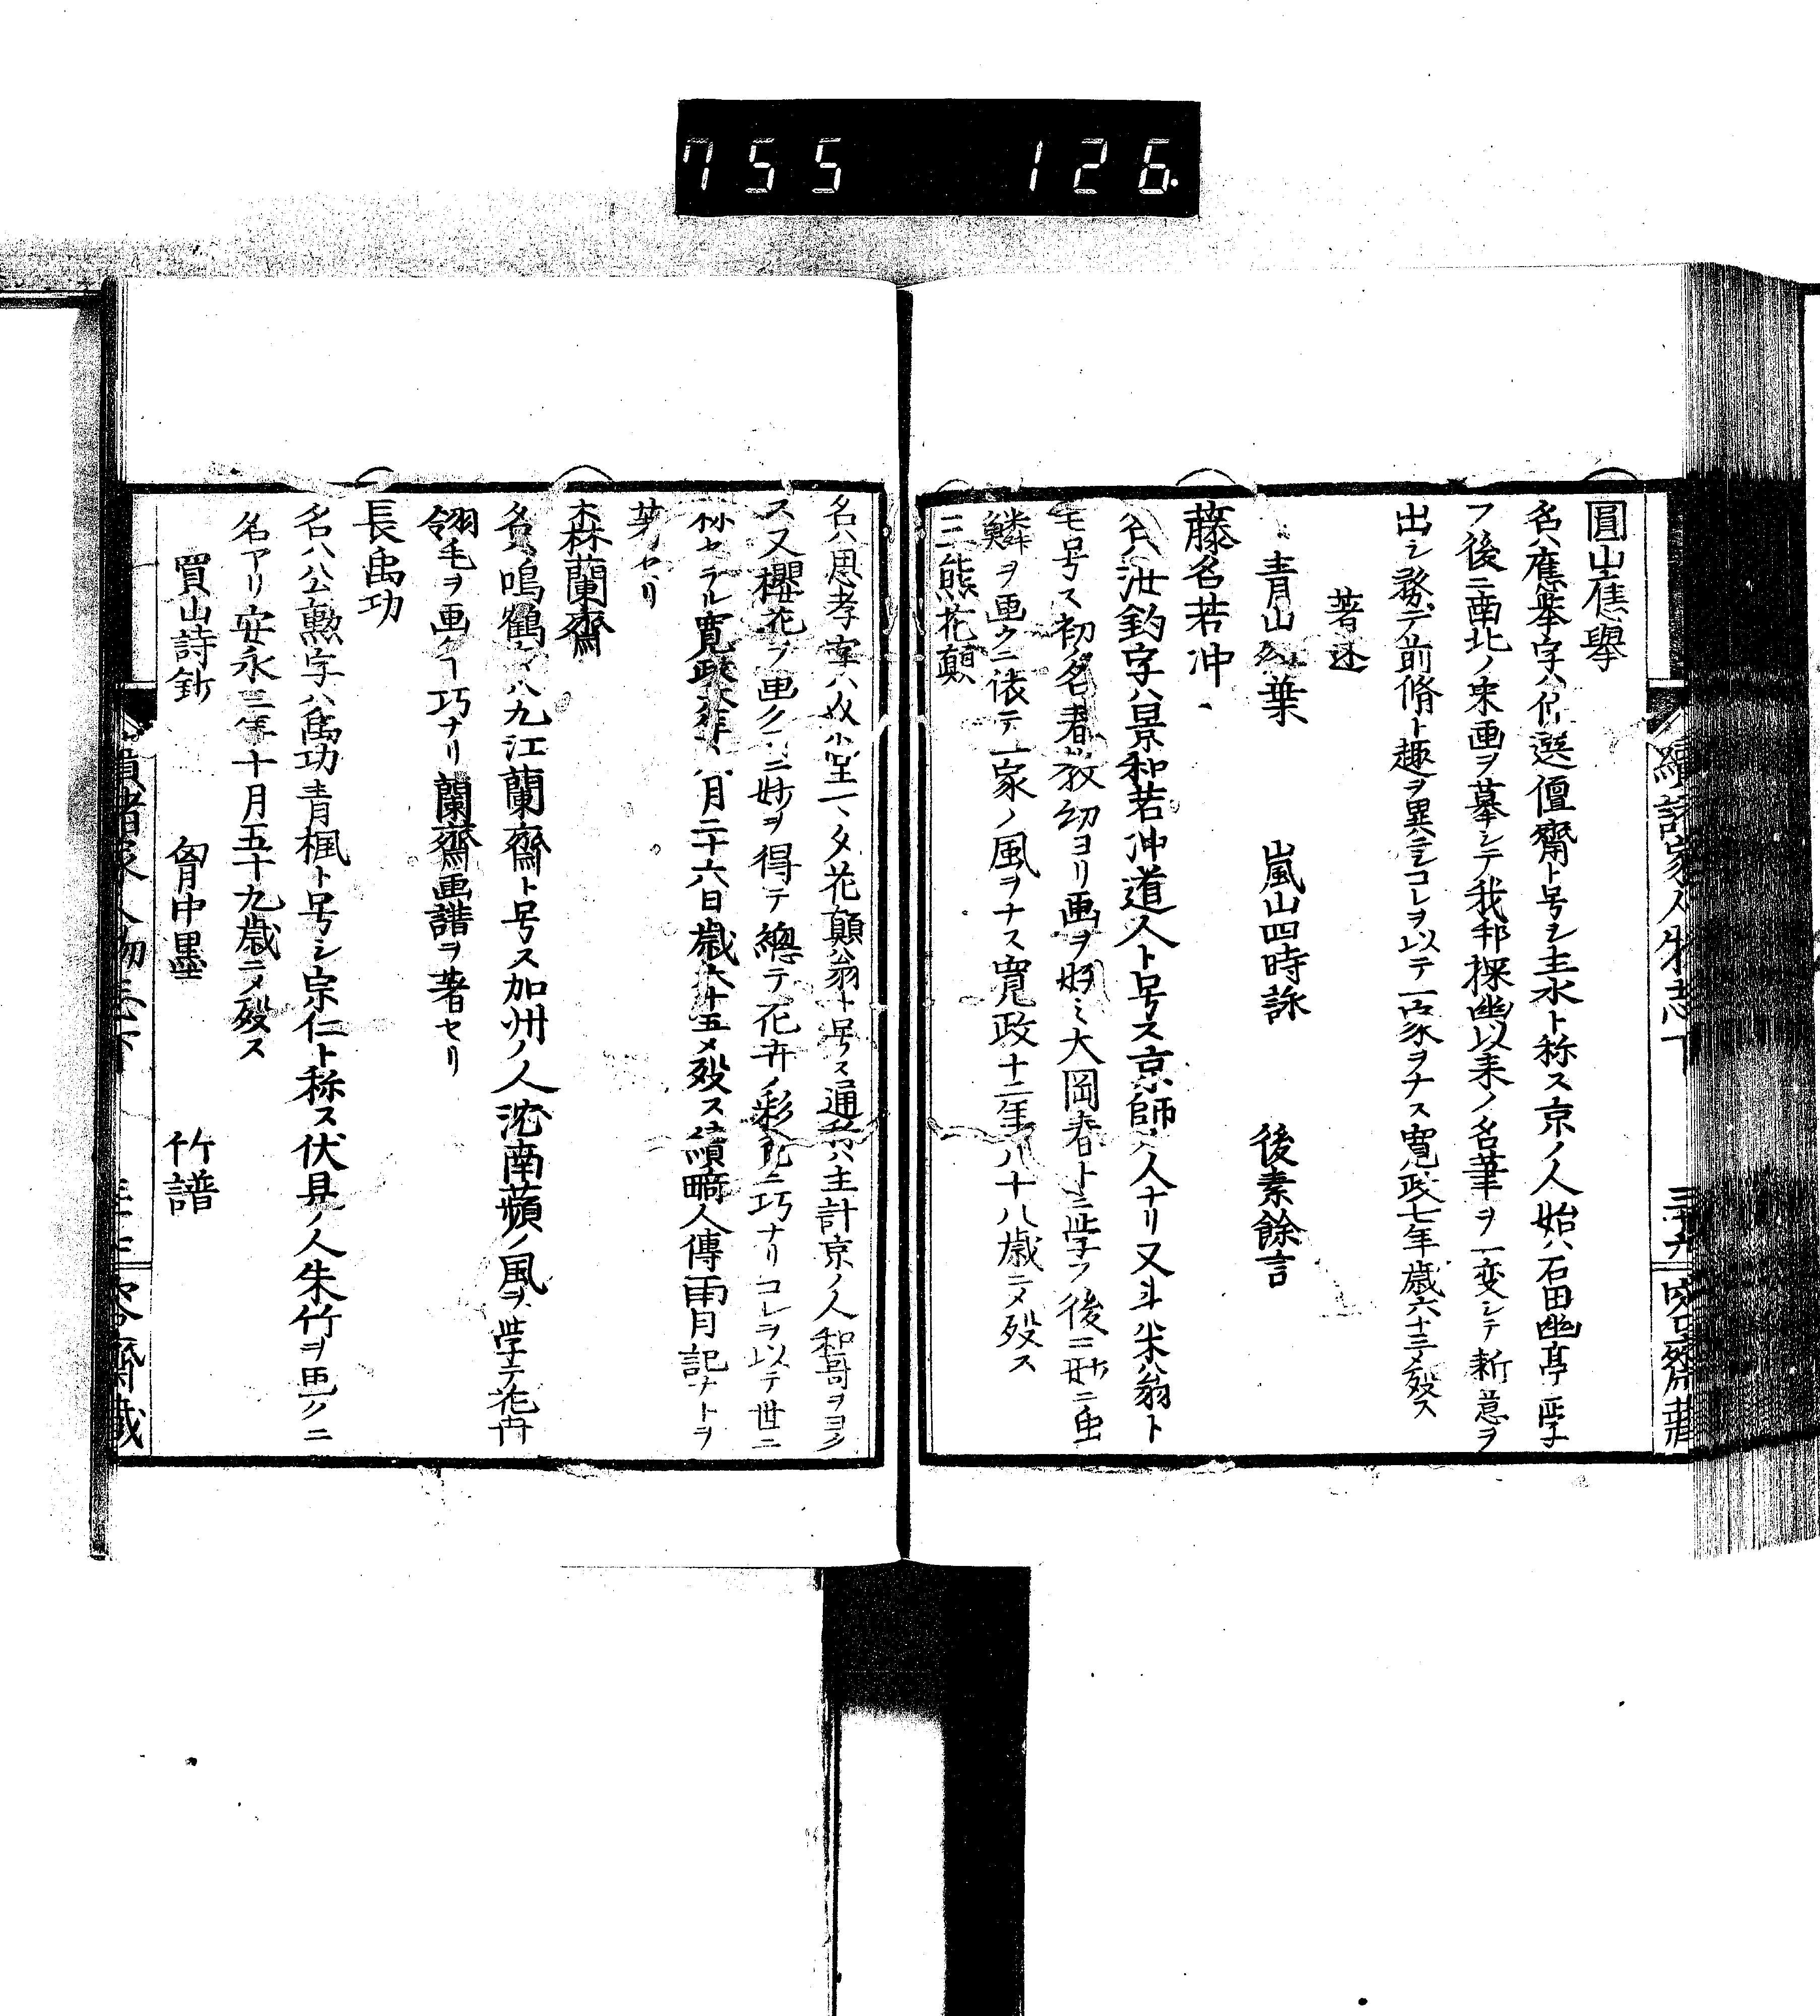 755 126
續諸家人物志下
圓山應擧
名ハ應挙字ハ仲選僊齋ト号シ主水ト称ス京ノ人始ハ石田幽亭ニ学
フ後ニ南北ノ宋画ヲ摹シテ我邦探幽以来ノ名筆ヲ一変シテ新意ヲ
出シ務テ前脩ト趣ヲ異ニシコレヲ以テ一家ヲナス寛政七年歳六十三ニメ殁ス
著述
青山 葉 嵐山四時詠 後素餘言
藤名若冲
名ハ汝鈞字ハ景和若冲道人ト号ス京師ノ人ナリ又斗米翁ト
モ号ス初名春教幼ヨリ画ヲ好ミ大岡春卜ニ学フ後ニ 虫
鱗ヲ画クニ依テ一家ノ風ヲナス寛政十二年八十八歳ニメ殁ス
三熊花顛
名ハ思孝 花顛翁ト号ス通称ハ主計京ノ人和哥ヲヨク
ス又櫻花ヲ画クニ妙ヲ得テ總テ花卉ノ彩色ニ巧ナリコレヲ以テ世ニ
称セラル寛政 年八月二十六日歳六十五メ殁ス續畸人傳雨月記ナトヲ
著セリ
森蘭齋
名ハ鳴鶴 九江蘭齋ト号ス加州ノ人沈南蘋ノ風ヲ学テ花卉
翎毛ヲ画クヿ巧ナリ蘭齋画譜ヲ著セリ
長禹功
名ハ公勲字ハ禹功青楓ト号シ宗仁ト称ス伏見ノ人朱竹ヲ画クニ
名アリ安永三年十月五十九歳ニメ殁ス
買山詩鈔 匈中墨 竹譜